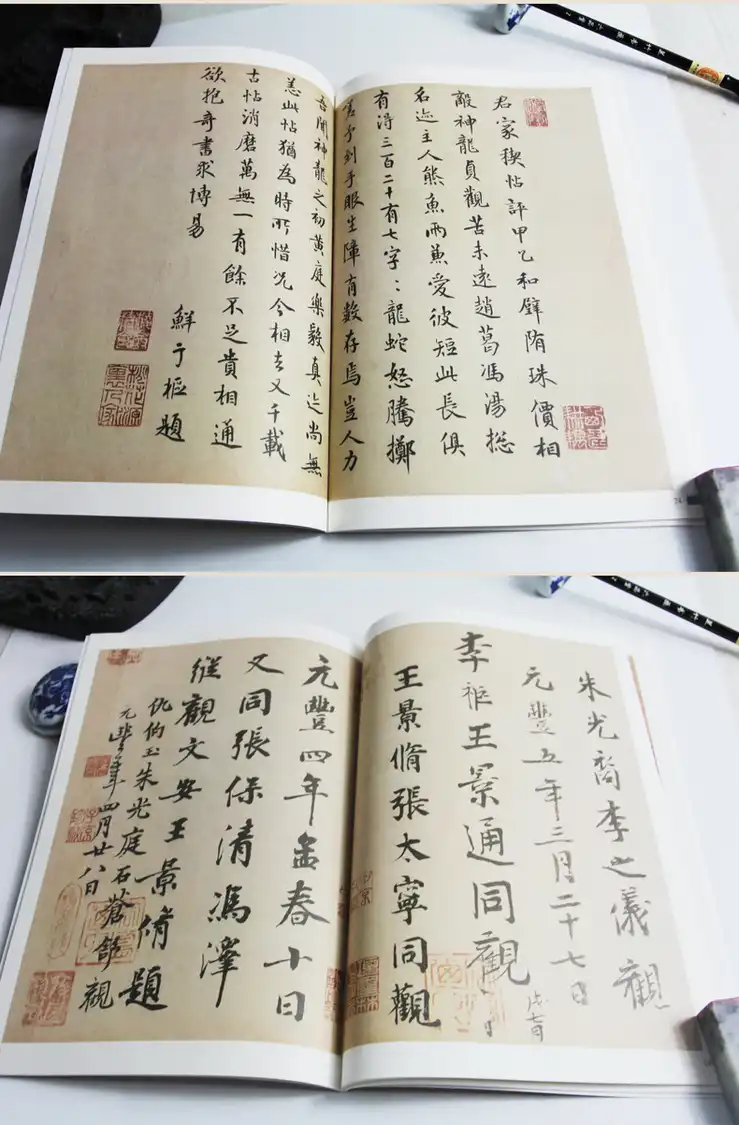 君家稧帖評甲乙和璧隋珠價相
敵神龍貞觀苦未遠趙葛馮湯摠
名迹主人熊魚兩兼愛彼短此長俱
有得三百二十有七字:龍蛇怒騰擲
嗟予到手眼生障有數存焉豈人力
吾聞神龍之初黃庭樂毅真迹尚無
恙此帖猶為時所惜况今相去又千載
古帖消磨萬無一有餘不足貴相通
欲抱奇書求博易
鮮于樞題
朱光裔李之儀觀
元豐五年三月二十七日
李秬王景通同觀
王景脩張太寧同觀
元豐四年孟春十日
又同張保清馮澤
縱觀文安王景脩題
仇伯玉朱光庭石蒼舒觀
元豐年四月廿八日